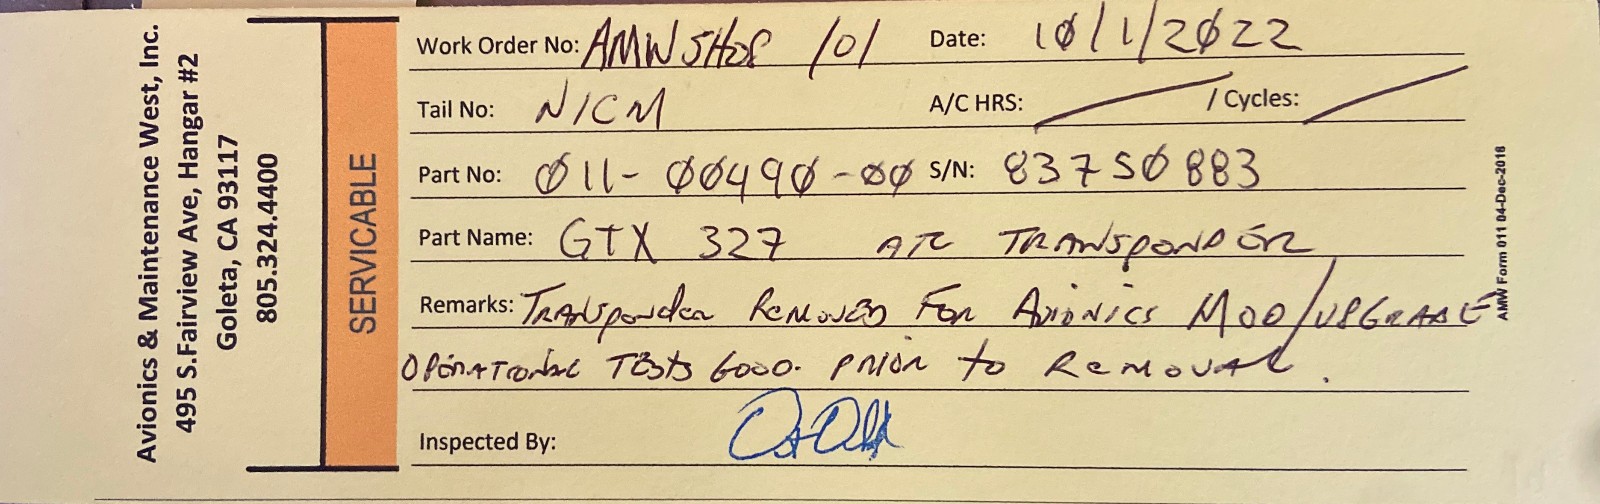 Avionics & Maintenance West, Inc.
495 S.Fairview Ave, Hangar #2
Goleta, CA 93117
805.324.4400
SERVICABLE
Work Order No: AMWSHOP 101 Date: 10/1/2022
Tail No: N1CM A/C HRS: / Cycles:
Part No: 011-00490-00 S/N: 83750883
Part Name: GTX 327 ATC TRANSPONDER
Remarks: TRANSponder Removed For Avionics MOD/UPGRADE
OPERATIONAL TESTS GOOD. PRIOR to Removal.
Inspected By:
AMW Form 011 04-Dec-2018